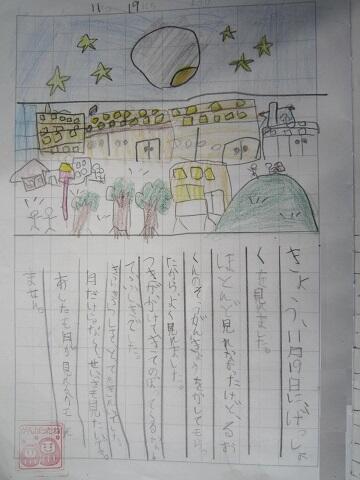 11 19
きょう、11月19日にげっしょ
くを見ました。
ほとんど見れなかったけど、るお
くんのそうがんきょうをかしてもらっ
たから、よく見れました。
つきがかけてるってのが、くるが
ふしぎでした。
月だけじゃなく、せいざも見たいです。
あしたも月が見えるかも
ません。
がんばったね